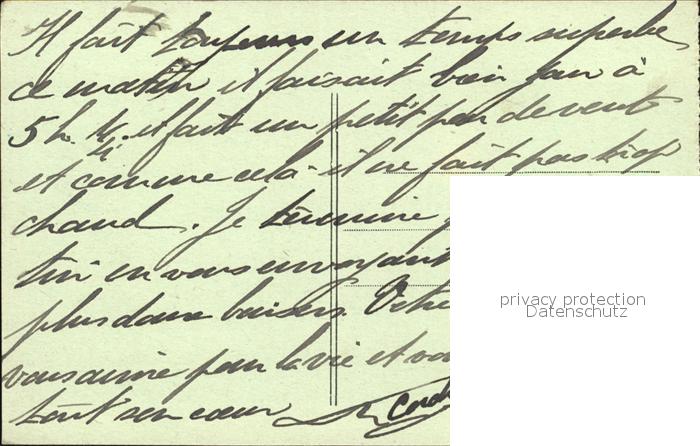 Il fait toujours un temps superbe,
ce matin il faisait bien jour à
5 h. 1/4, il fait un petit peu de vent
et comme cela il ne fait pas trop
chaud. Je termine
en vous envoyant
plus doux baisers. Votre
vous aime pour la vie et
tout son cœur
privacy protection
Datenschutz